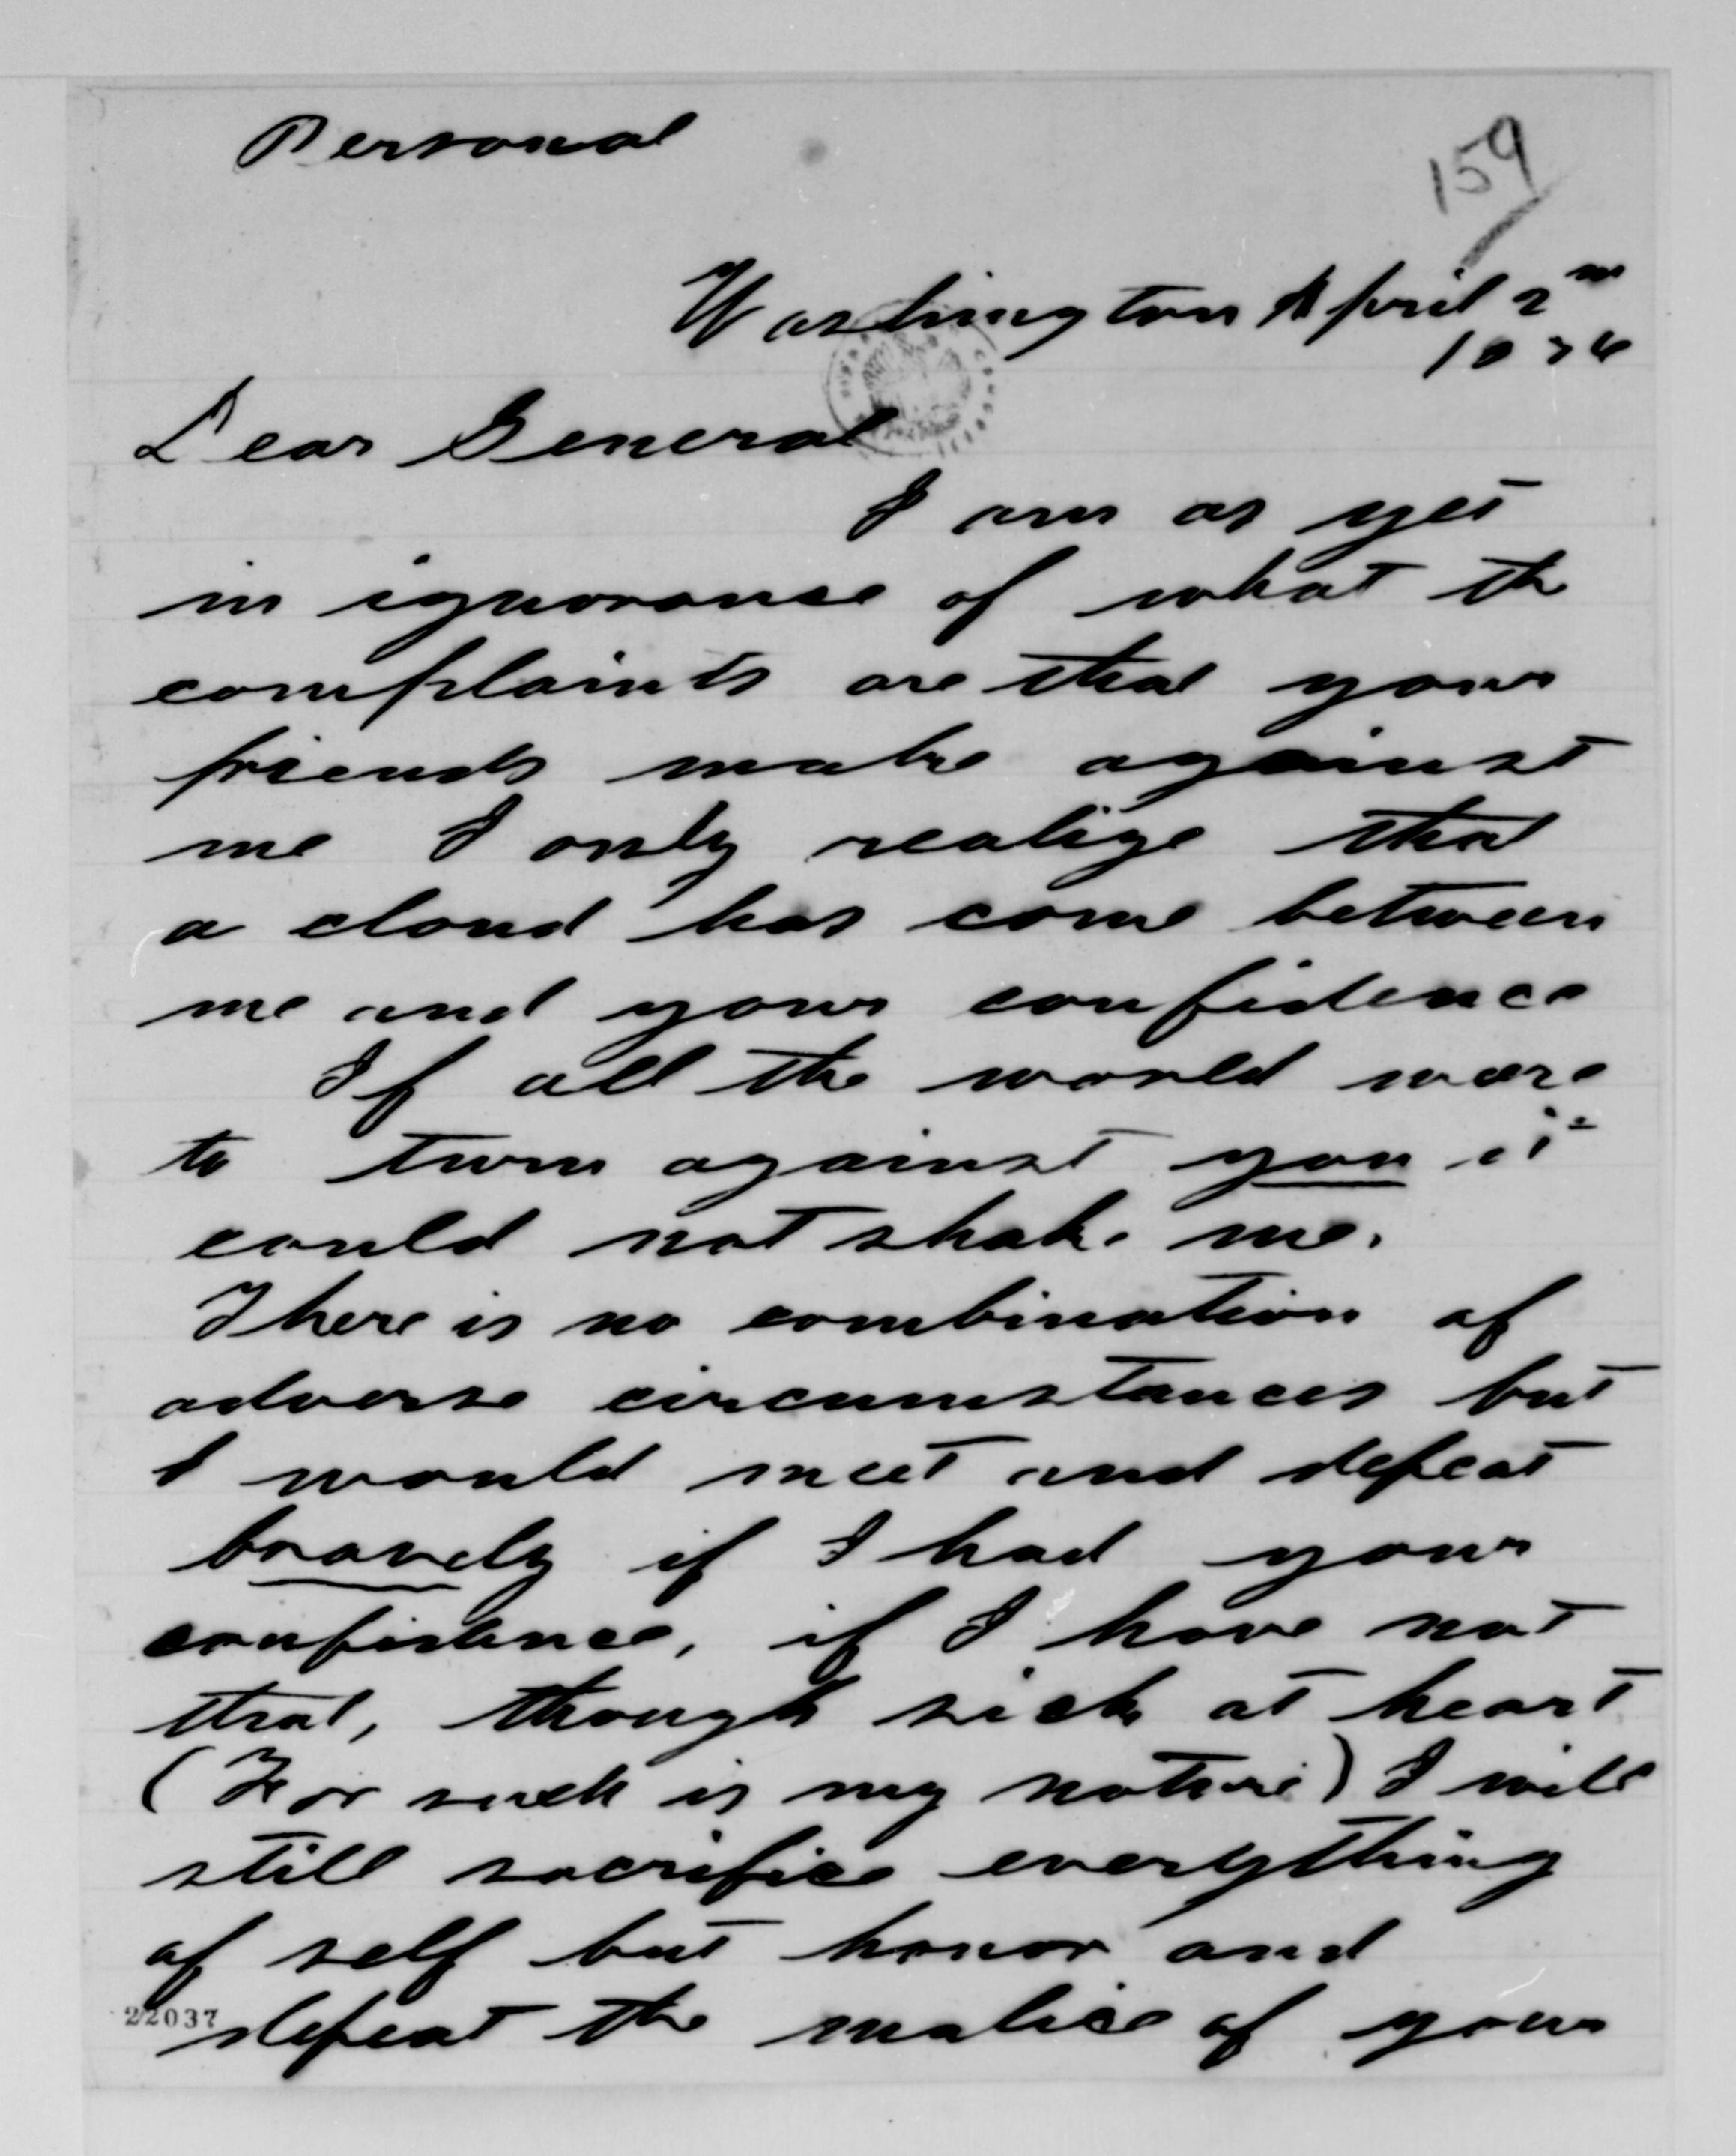 Personal
159
Washington April 2nd
1876
Dear General
I am as yet
in ignorance of what the
complaints are that your
friends make against
me I only realize that
a cloud has come between
me and your confidence
If all the world were
to turn against you it
could not shake me.
There is no combination of
adverse circumstances but
I would meet and defeat
bravely if I had your
confidence, if I have not
that, though sick at heart
(For such is my nature) I will
still sacrifice everything
of self but honor and
22037
defeat the malice of your